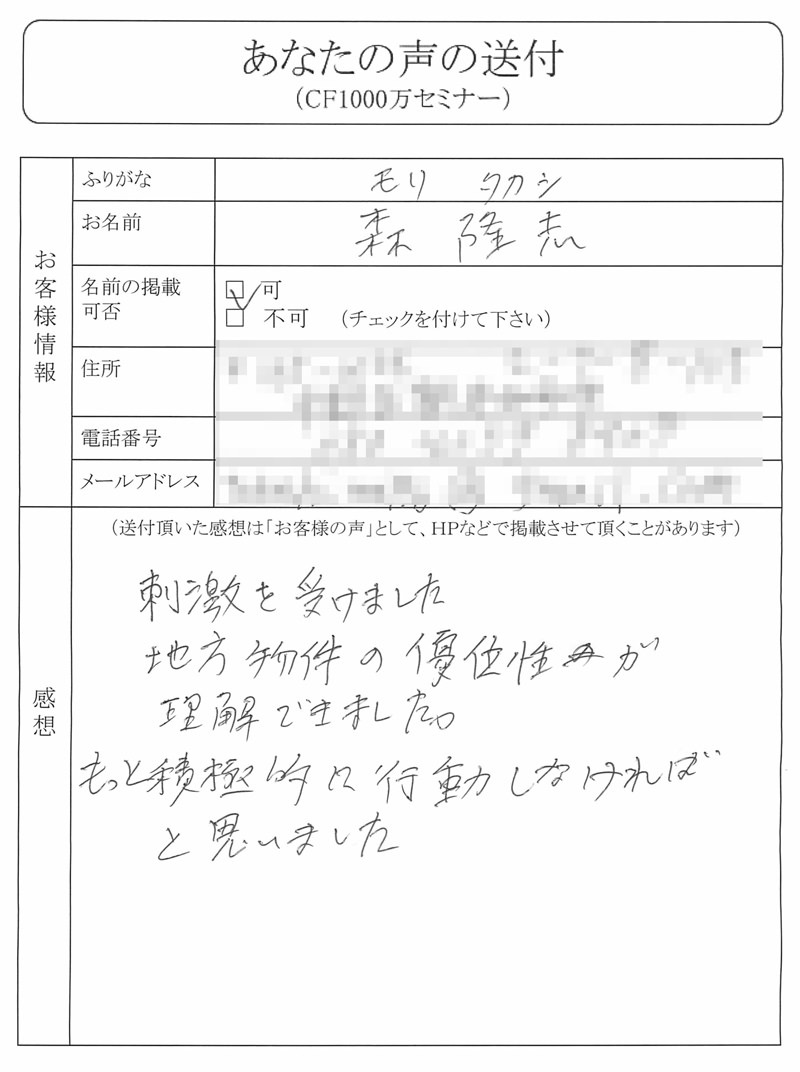 あなたの声の送付
(CF1000万セミナー)
お客様情報
ふりがな
モリ タカシ
お名前
森 隆志
名前の掲載
可否
可
不可 (チェックを付けて下さい)
住所
電話番号
メールアドレス
感想
(送付頂いた感想は「お客様の声」として、HPなどで掲載させて頂くことがあります)
刺激を受けました
地方物件の優位性が
理解できました。
もっと積極的に行動しなければ
と思いました